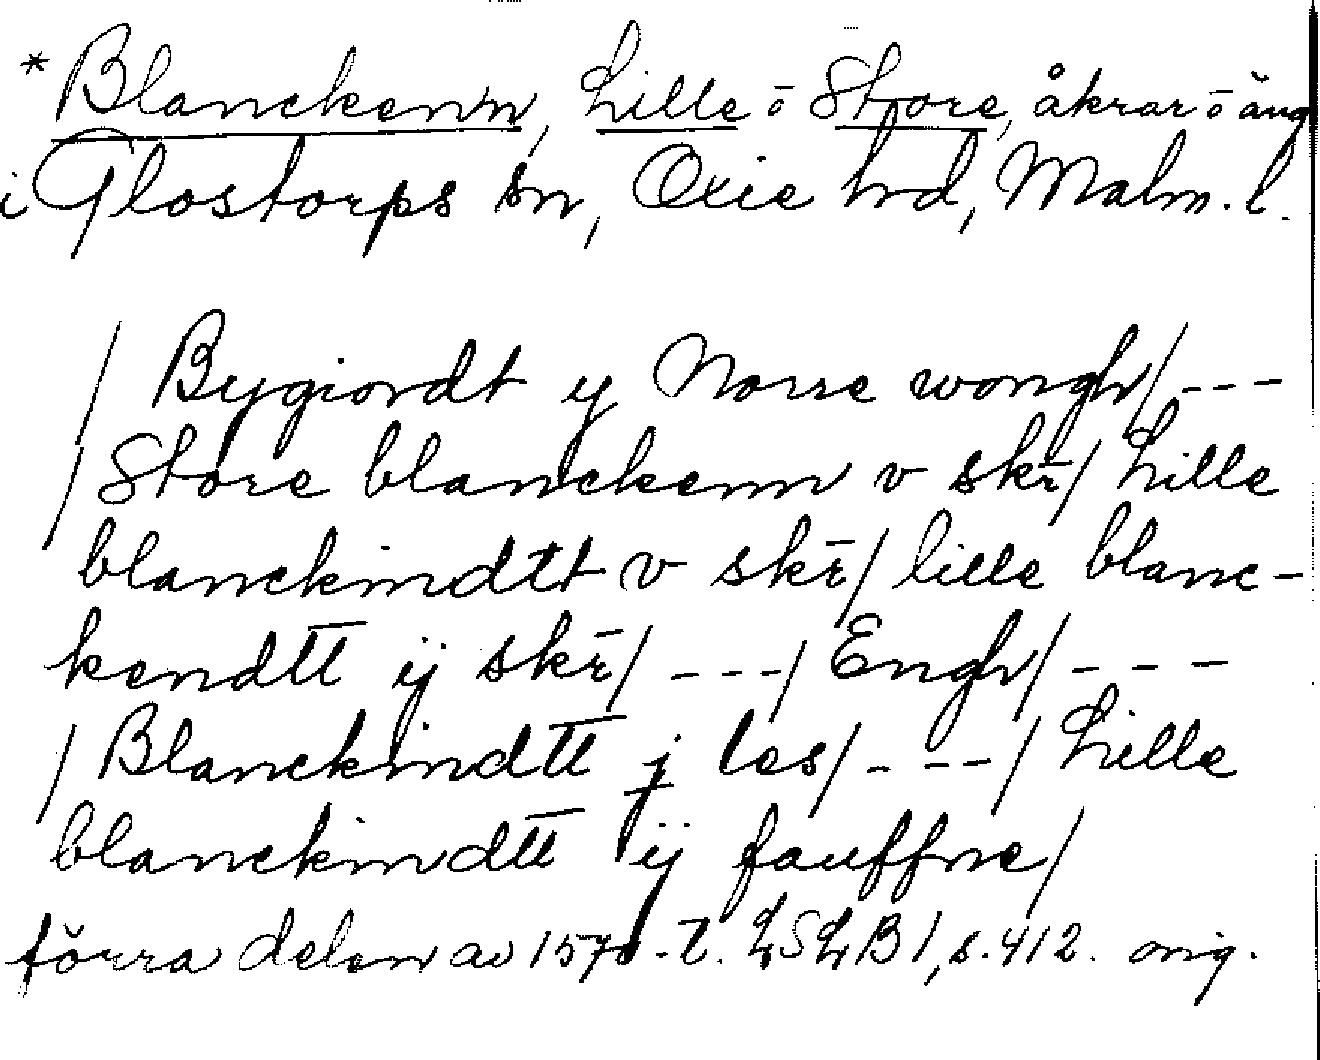 * Blanckenn, Lille o Store, åkrar o äng
i Glostorps sn, Oxie hrd, Malm. l.
/ Bygiordt y Norre wongh/ ---
/ Store blanckenn v skr̄/ Lille
blanckindtt v skr̄/ lille blanc-
kendtt ij skr̄/ ---/ Engh/ ---
/ Blanckindtt j les/ ---/ Lille
blanckindtt ij fauffne/
förra delen av 1570-t. LSLB 1, s. 412. orig.